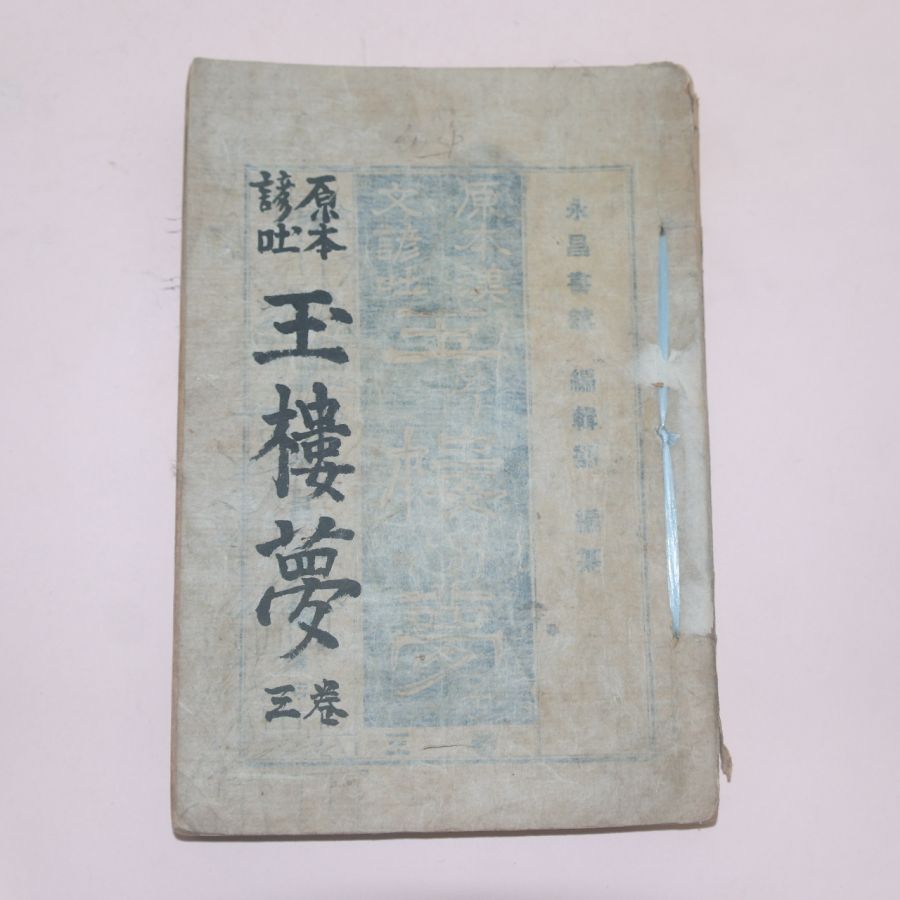 永昌書館 編輯部 編纂
原本漢
文諺吐
玉樓夢
三
原本
諺吐
玉樓夢
卷
三